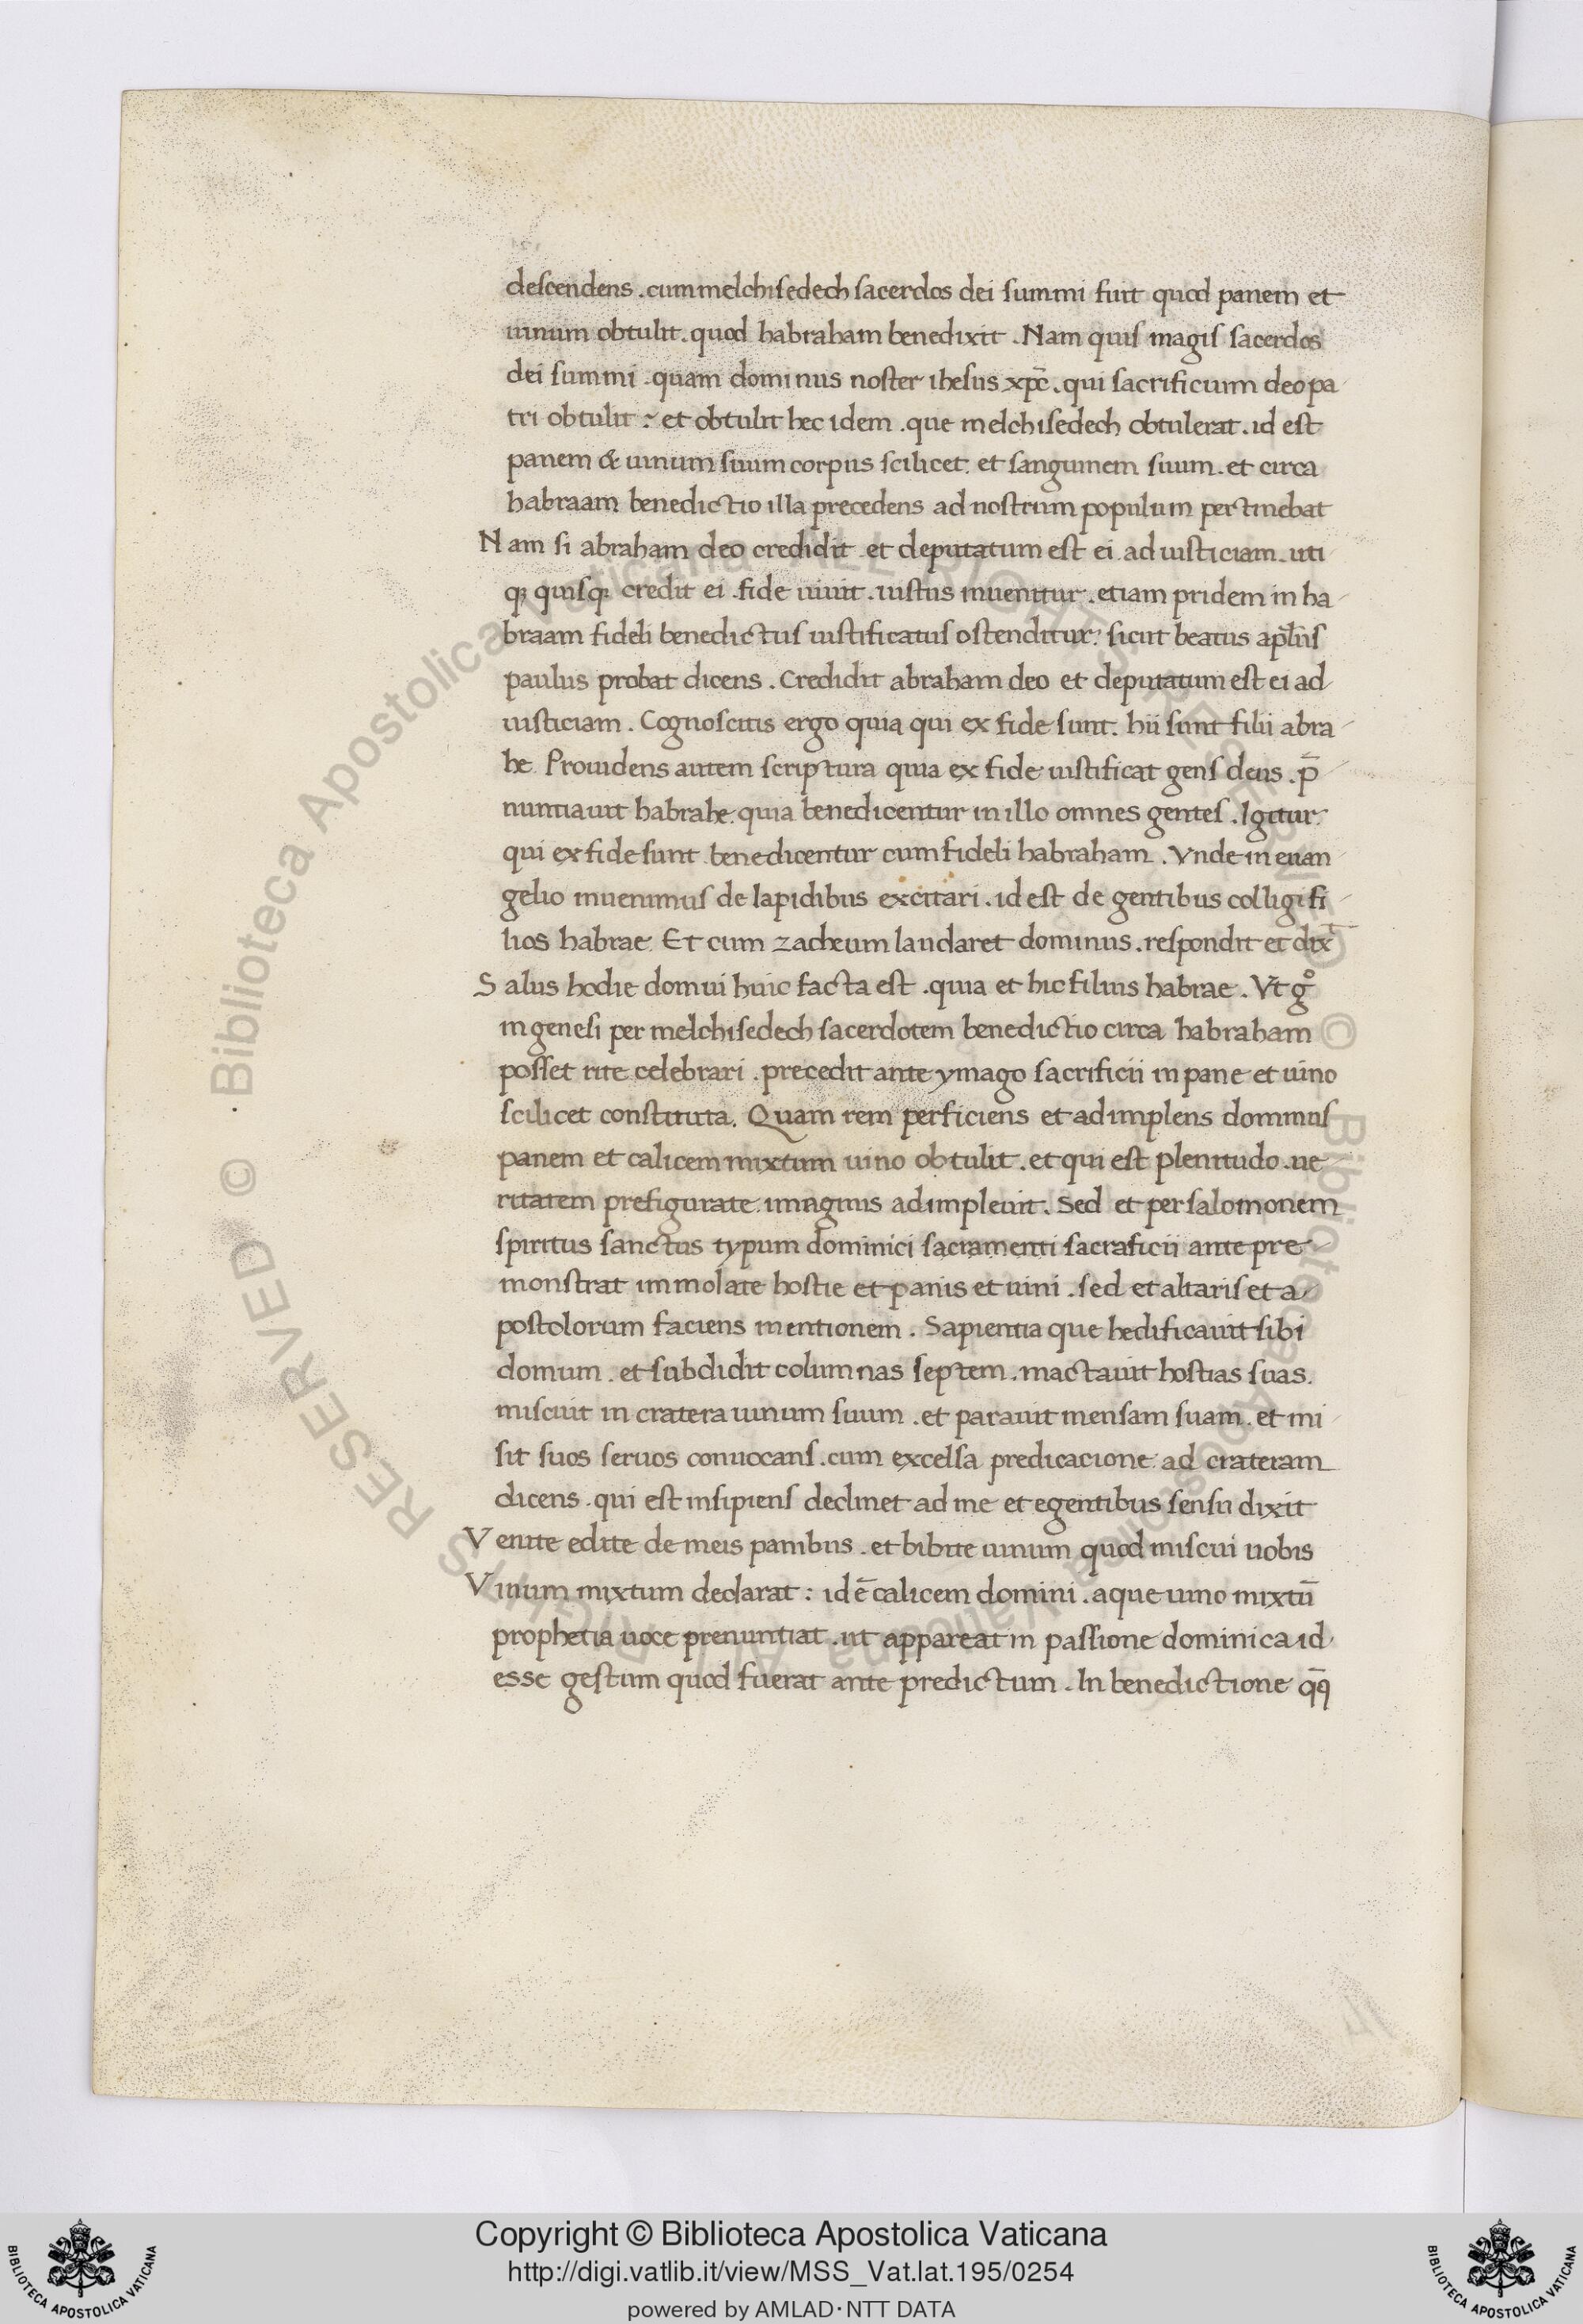 descendens . cum melchisedech sacerdos dei summi fuit quod panem et
uinum obtulit . quod habraham benedixit . Nam quis magis sacerdos
dei summi . quam dominus noster ihesus xp̄c . qui sacrificium deo pa
tri obtulit : et obtulit hec idem . que melchisedech obtulerat . id est
panem & uinum suum corpus scilicet . et sanguinem suum . et circa
habraam benedictio illa precedens ad nostrum populum pertinebat
Nam si abraham deo credidit . et deputatum est ei ad iusticiam . uti
qꝫ quisqꝫ credit ei . fide uiuit . iustus inuenitur . etiam pridem in ha
braam fideli benedictus iustificatus ostenditur . sicut beatus apl̄us
paulus probat dicens . Credidit abraham deo et deputatum est ei ad
iusticiam . Cognoscitis ergo quia qui ex fide sunt . hii sunt filii abra
he . Prouidens autem scriptura quia ex fide iustificat gens deus . p̄
nuntiauit habrahe . quia benedicentur in illo omnes gentes . Igitur
qui ex fide sunt . benedicentur cum fideli habraham . Vnde in euan
gelio inuenimus de lapidibus excitari . id est de gentibus colligi fi
lios habrae . Et cum zacheum laudaret dominus . respondit et dixt
Salus hodie domui huic facta est . quia et hic filius habrae . Vt gͦ
in genesi per melchisedech sacerdotem benedictio circa habraham
posset rite celebrari . precedit ante ymago sacrificii in pane et uino
scilicet constituta . Quam rem perficiens et adimplens dominus
panem et calicem mixtum uino obtulit . et qui est plenitudo . ue
ritatem prefigurate imaginis adimpleuit . Sed et per salomonem
spiritus sanctus typum dominici sacramenti sacraficii ante pre
monstrat immolate hostie et panis et uini . sed et altaris et a
postolorum faciens mentionem . Sapientia que hedificauit sibi
domum . et subdidit columnas septem . mactauit hostias suas .
miscuit in cratera uinum suum . et parauit mensam suam . et mi
sit suos seruos conuocans . cum excelsa predicacione ad crateram
dicens . qui est insipiens declinet ad me et egentibus sensu dixit
Venite edite de meis panibus . et bibite uinum quod miscui uobis
Vinum mixtum declarat : id ē calicem domini . aque uino mixtū
prophetia uoce prenuntiat . ut appareat in passione dominica id
esse gestum quod fuerat ante predictum . In benedictione qq̄
Copyright © Biblioteca Apostolica Vaticana
http://digi.vatlib.it/view/MSS_Vat.lat.195/0254
powered by AMLAD·NTT DATA